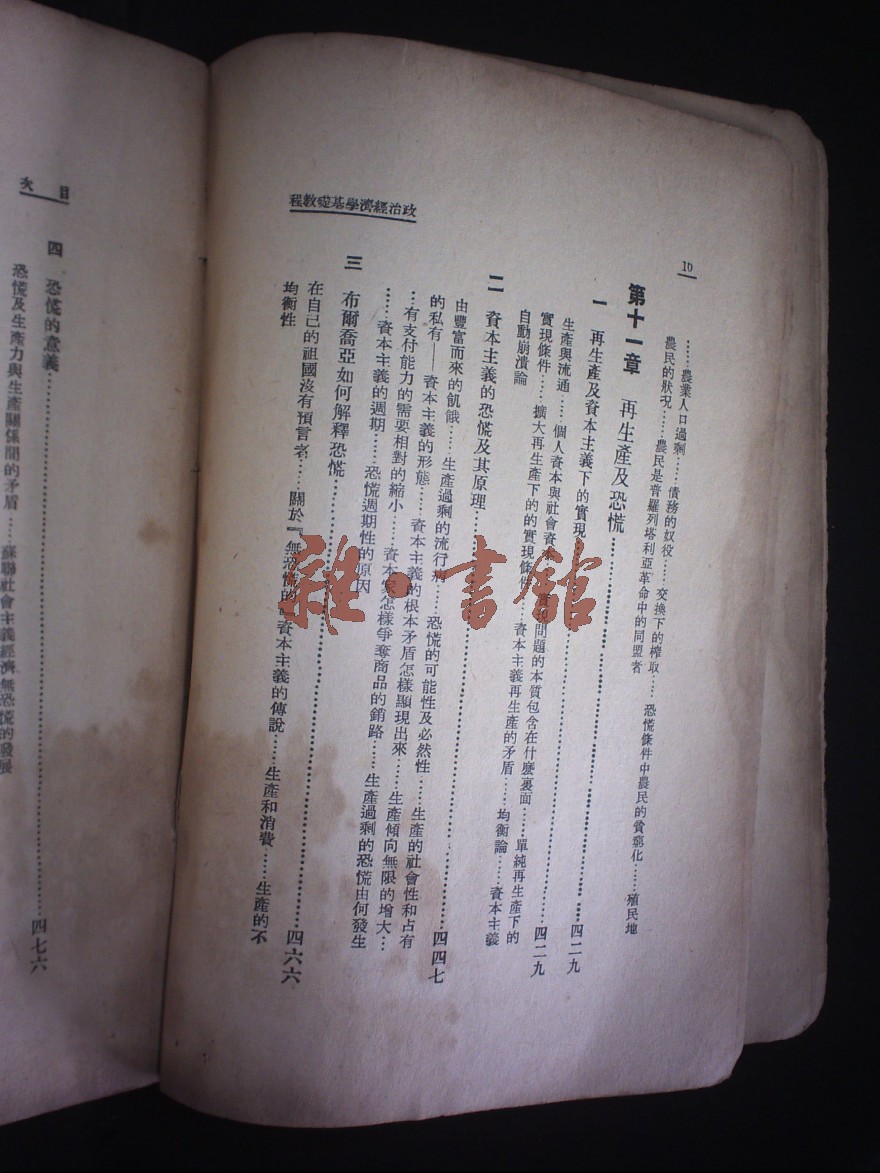 政治經濟學基礎教程
10
……農業人口過剩……債務的奴役……交換下的榨取……恐慌條件中農民的貧窮化……殖民地
農民的狀況……農民是普羅列塔利亞革命中的同盟者
第十一章 再生產及恐慌……四二九
一 再生產及資本主義下的實現……四二九
生產與流通……個人資本與社會資本……實現問題的本質包含在什麼裏面……單純再生產下的
實現條件……擴大再生產下的的實現條件……資本主義再生產的矛盾……均衡論……資本主義
自動崩潰論
二 資本主義的恐慌及其原理……四四七
由豐富而來的飢餓……生產過剩的流行病……恐慌的可能性及必然性……生產的社會性和占有
的私有——資本主義的形態……資本主義的根本矛盾怎樣顯現出來……生產傾向無限的增大…
…有支付能力的需要相對的縮小……資本家怎樣爭奪商品的銷路……生產過剩的恐慌由何發生
……資本主義的週期……恐慌週期性的原因
三 布爾喬亞如何解釋恐慌……四六六
在自己的祖國沒有預言者……關於『無恐慌的』資本主義的傳說……生產和消費……生產的不
均衡性
目次
四 恐慌的意義……四七六
恐慌及生產力與生產關係間的矛盾……蘇聯社會主義經濟無恐慌的發展
雜·書館